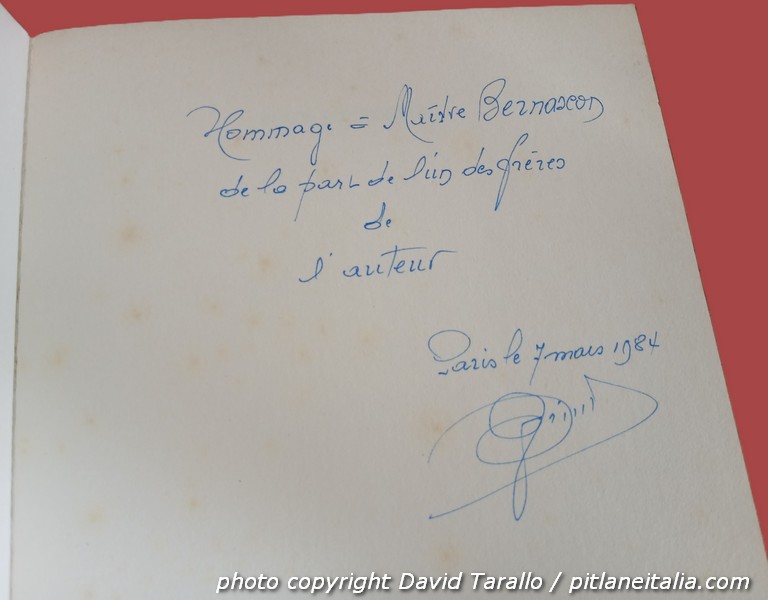 Hommage à Maître Bernascon
de la part de l'un des frères
de
l'auteur
Paris le 7 mars 1984
photo copyright David Tarallo / pitlaneitalia.com